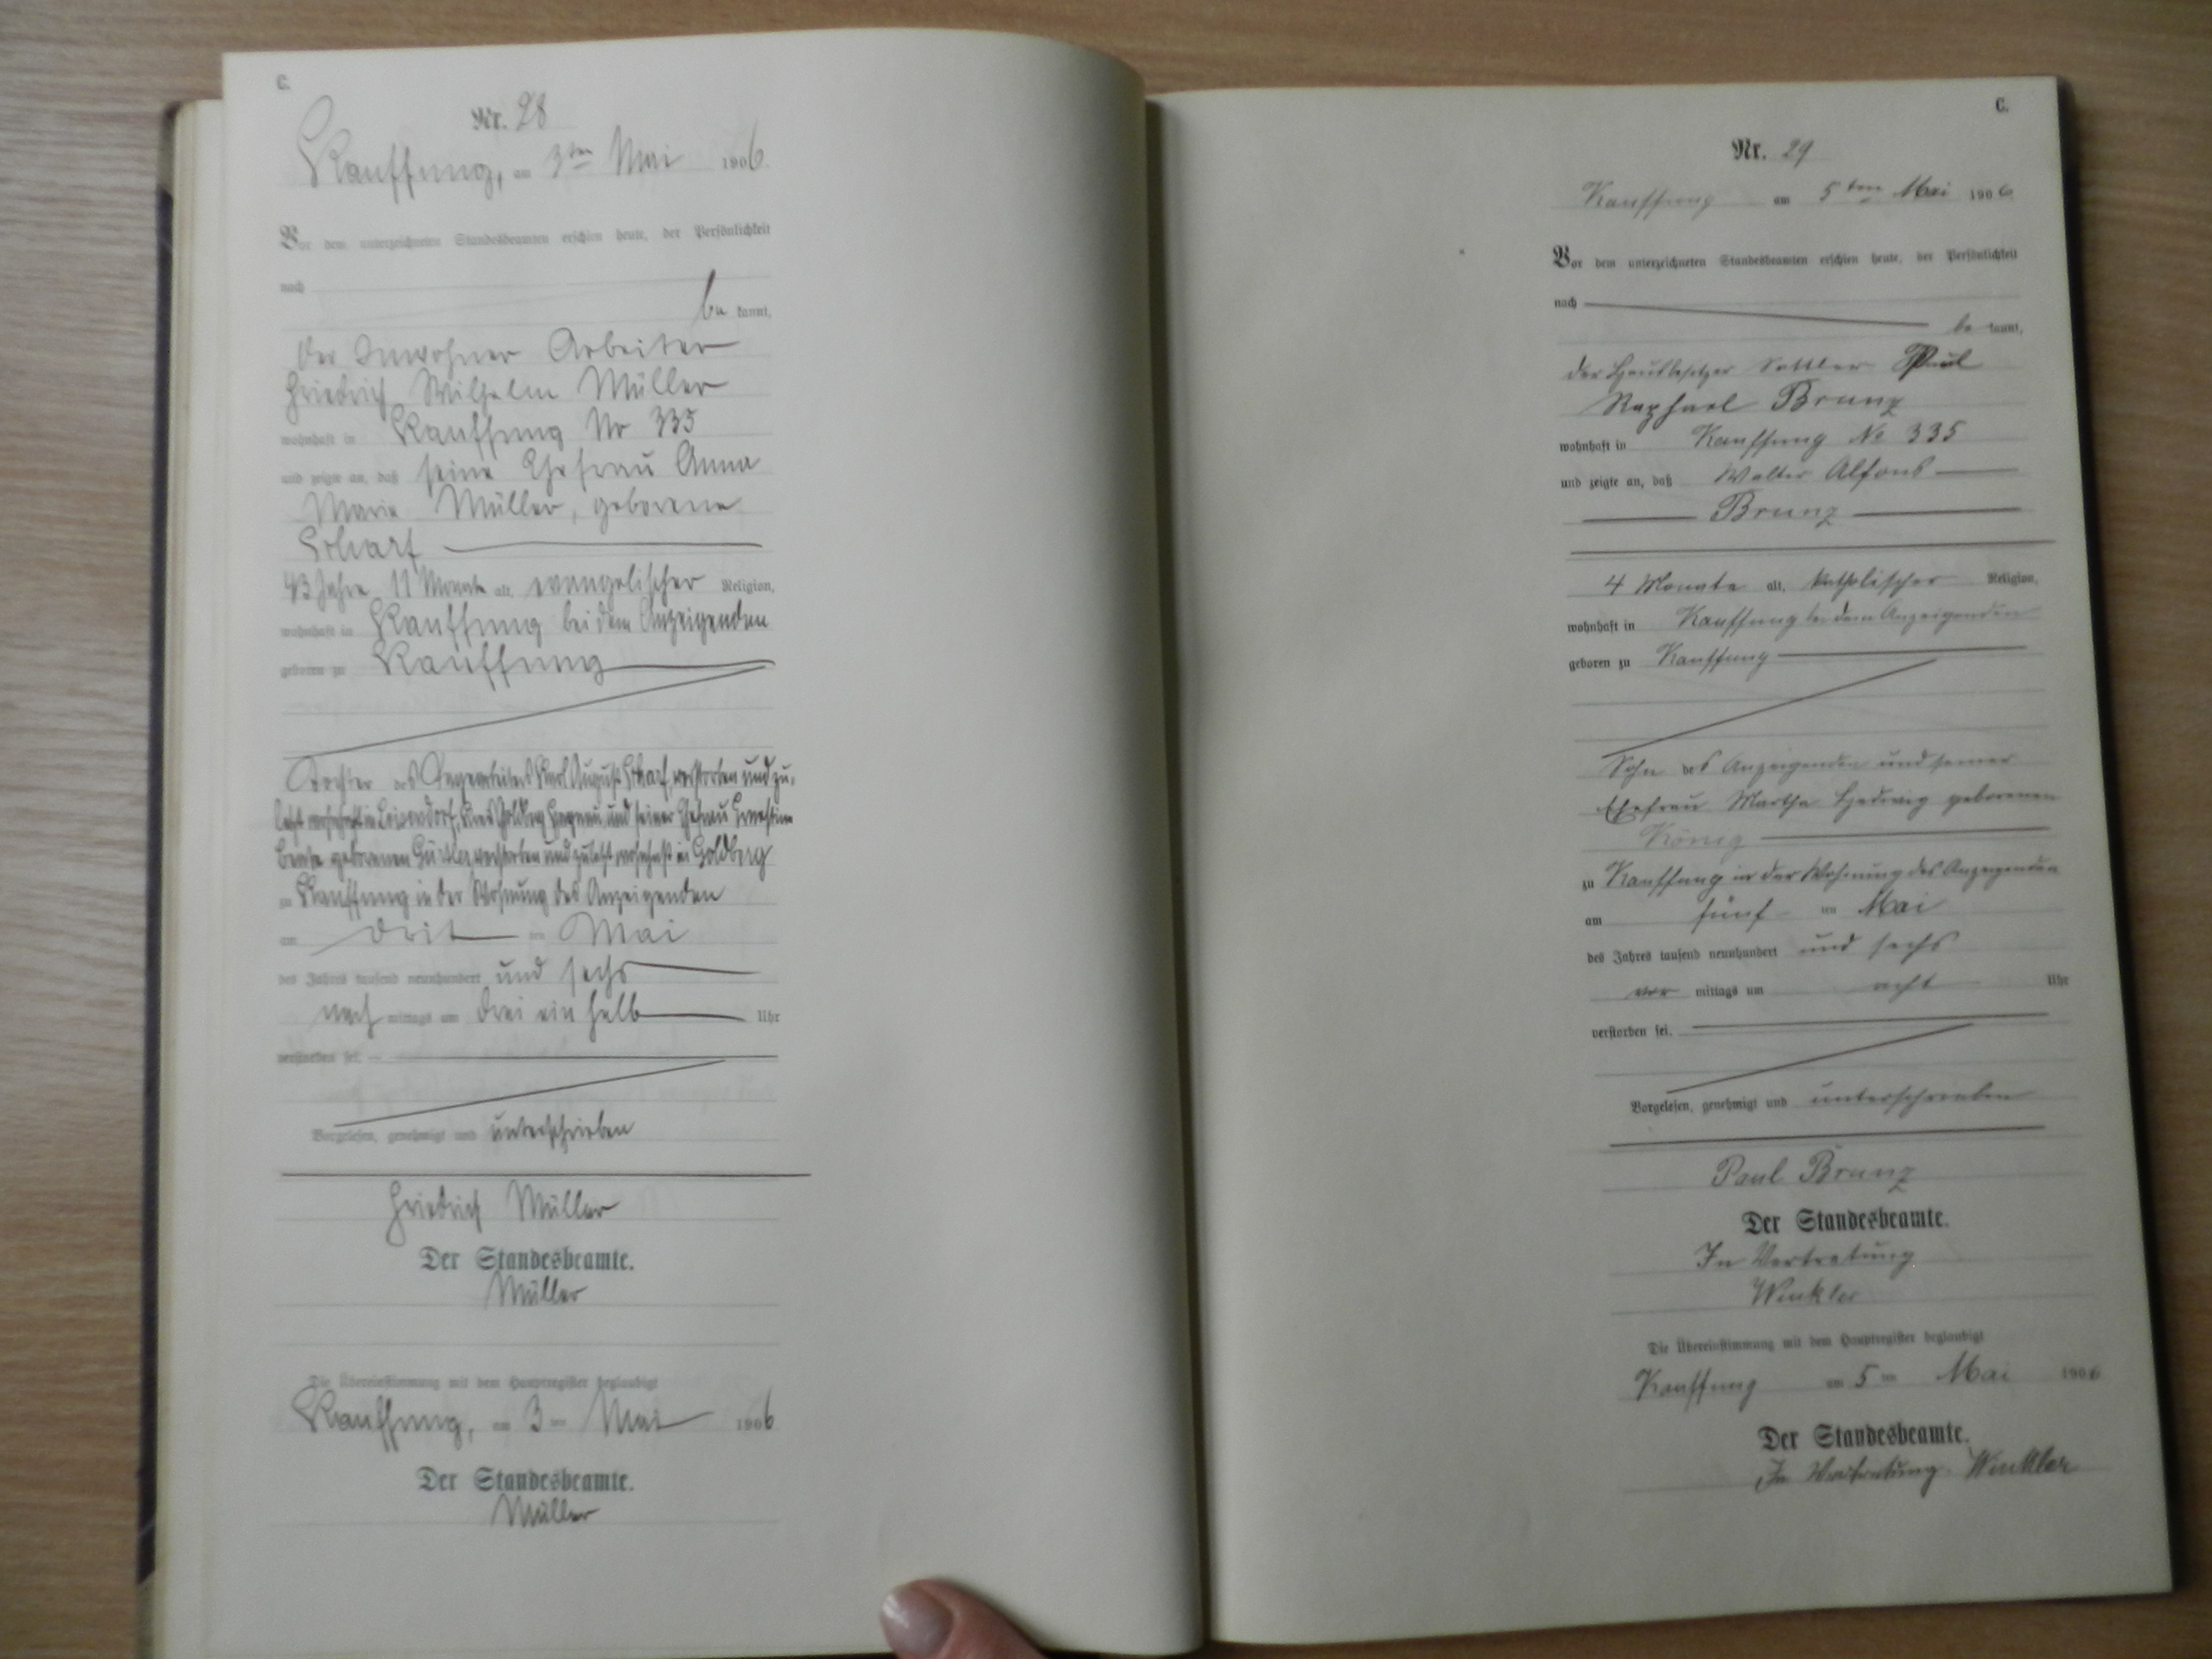 C.
Nr. 28
Kauffung, am 3ten Mai 1906.
Vor dem unterzeichneten Standesbeamten erschien heute, der Persönlichkeit
nach
be kannt,
der Inwohner Arbeiter
Friedrich Wilhelm Müller
wohnhaft in Kauffung Nr 335
und zeigte an, daß seine Ehefrau Anna
Marie Müller, geborene
Scharf
43 Jahre 11 Monate alt, evangelischer Religion,
wohnhaft in Kauffung bei dem Anzeigenden
geboren zu Kauffung
Tochter des Karl August Scharf, verstorben und zu-
letzt wohnhaft in Kreis Goldberg Haynau, und seiner Ehefrau Ernestine
Beate geborenen verstorben und zuletzt wohnhaft in Goldberg
zu Kauffung in der Wohnung des Anzeigenden
am drit ten Mai
des Jahres tausend neunhundert und sechs
nach mittags um drei ein halb Uhr
verstorben sei.
Vorgelesen, genehmigt und unterschrieben
Friedrich Müller
Der Standesbeamte.
Müller
Die Übereinstimmung mit dem Hauptregister beglaubigt
Kauffung, am 3 ten Mai 1906
Der Standesbeamte.
Müller
C.
Nr. 29
Kauffung am 5ten Mai 1906
Vor dem unterzeichneten Standesbeamten erschien heute, der Persönlichkeit
nach
be kannt,
der Hausbesitzer Sattler Paul
Raphael Brunz
wohnhaft in Kauffung No 335
und zeigte an, daß Walter Alfons
Brunz
4 Monate alt, katholischer Religion,
wohnhaft in Kauffung bei dem Anzeigenden
geboren zu Kauffung
Sohn des Anzeigenden und seiner
Ehefrau Martha Hedwig geborenen
König
zu Kauffung in der Wohnung des Anzeigenden
am fünf ten Mai
des Jahres tausend neunhundert und sechs
vor mittags um acht Uhr
verstorben sei.
Vorgelesen, genehmigt und unterschrieben
Paul Brunz
Der Standesbeamte.
In Vertretung
Winkler
Die Übereinstimmung mit dem Hauptregister beglaubigt
Kauffung am 5 ten Mai 1906
Der Standesbeamte.
In Vertretung. Winkler